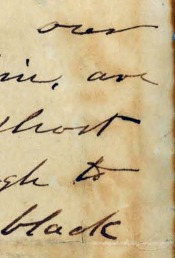 over
him, are
short
gh to
black